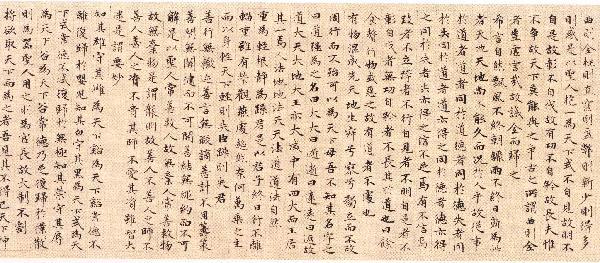 曲則全枉則直窪則盈弊則新少則得多
則惑是以聖人抱一為天下式不自見故明不
自是故彰不自伐故有功不自矜故長夫惟
不爭故天下莫能與之爭古之所謂曲則全
者豈虛言哉故誠全而歸之
希言自然飄風不終朝驟雨不終日孰為此
者天地天地尚不能久而況於人乎故從事
於道者道者同於道德者同於德失者同
於失同於道者道亦得之同於德者德亦得
之同於失者失亦得之信不足焉有不信焉
跂者不立跨者不行自見者不明自是者不
彰自伐者無功自矜者不長其於道也曰餘
食贅行物或惡之故有道者不處也
有物混成先天地生寂兮寥兮獨立而不改
周行而不殆可以為天下母吾不知其名字之
曰道強為之名曰大大曰逝逝曰遠遠曰返故
道大天大地大王亦大域中有四大而王居
其一焉人法地地法天天法道道法自然
重為輕根靜為躁君是以君子終日行不離
輜重雖有榮觀燕處超然奈何萬乘之主
而以身輕天下輕則失臣躁則失君
善行無轍迹善言無瑕謫善計不用籌策
善閉無關鍵而不可開善結無繩約而不可
解是以聖人常善救人故無棄人常善救物
故無棄物是謂襲明故善人不善人之師不
善人善人之資不貴其師不愛其資雖智大
迷是謂要妙
知其雄守其雌為天下谿為天下谿常德不
離復歸於嬰兒知其白守其黑為天下式為天
下式常德不忒復歸於無極知其榮守其辱
為天下谷為天下谷常德乃足復歸於樸樸散
則為器聖人用之則為官長故大制不割
將欲取天下而為之者吾見其不得已天下神